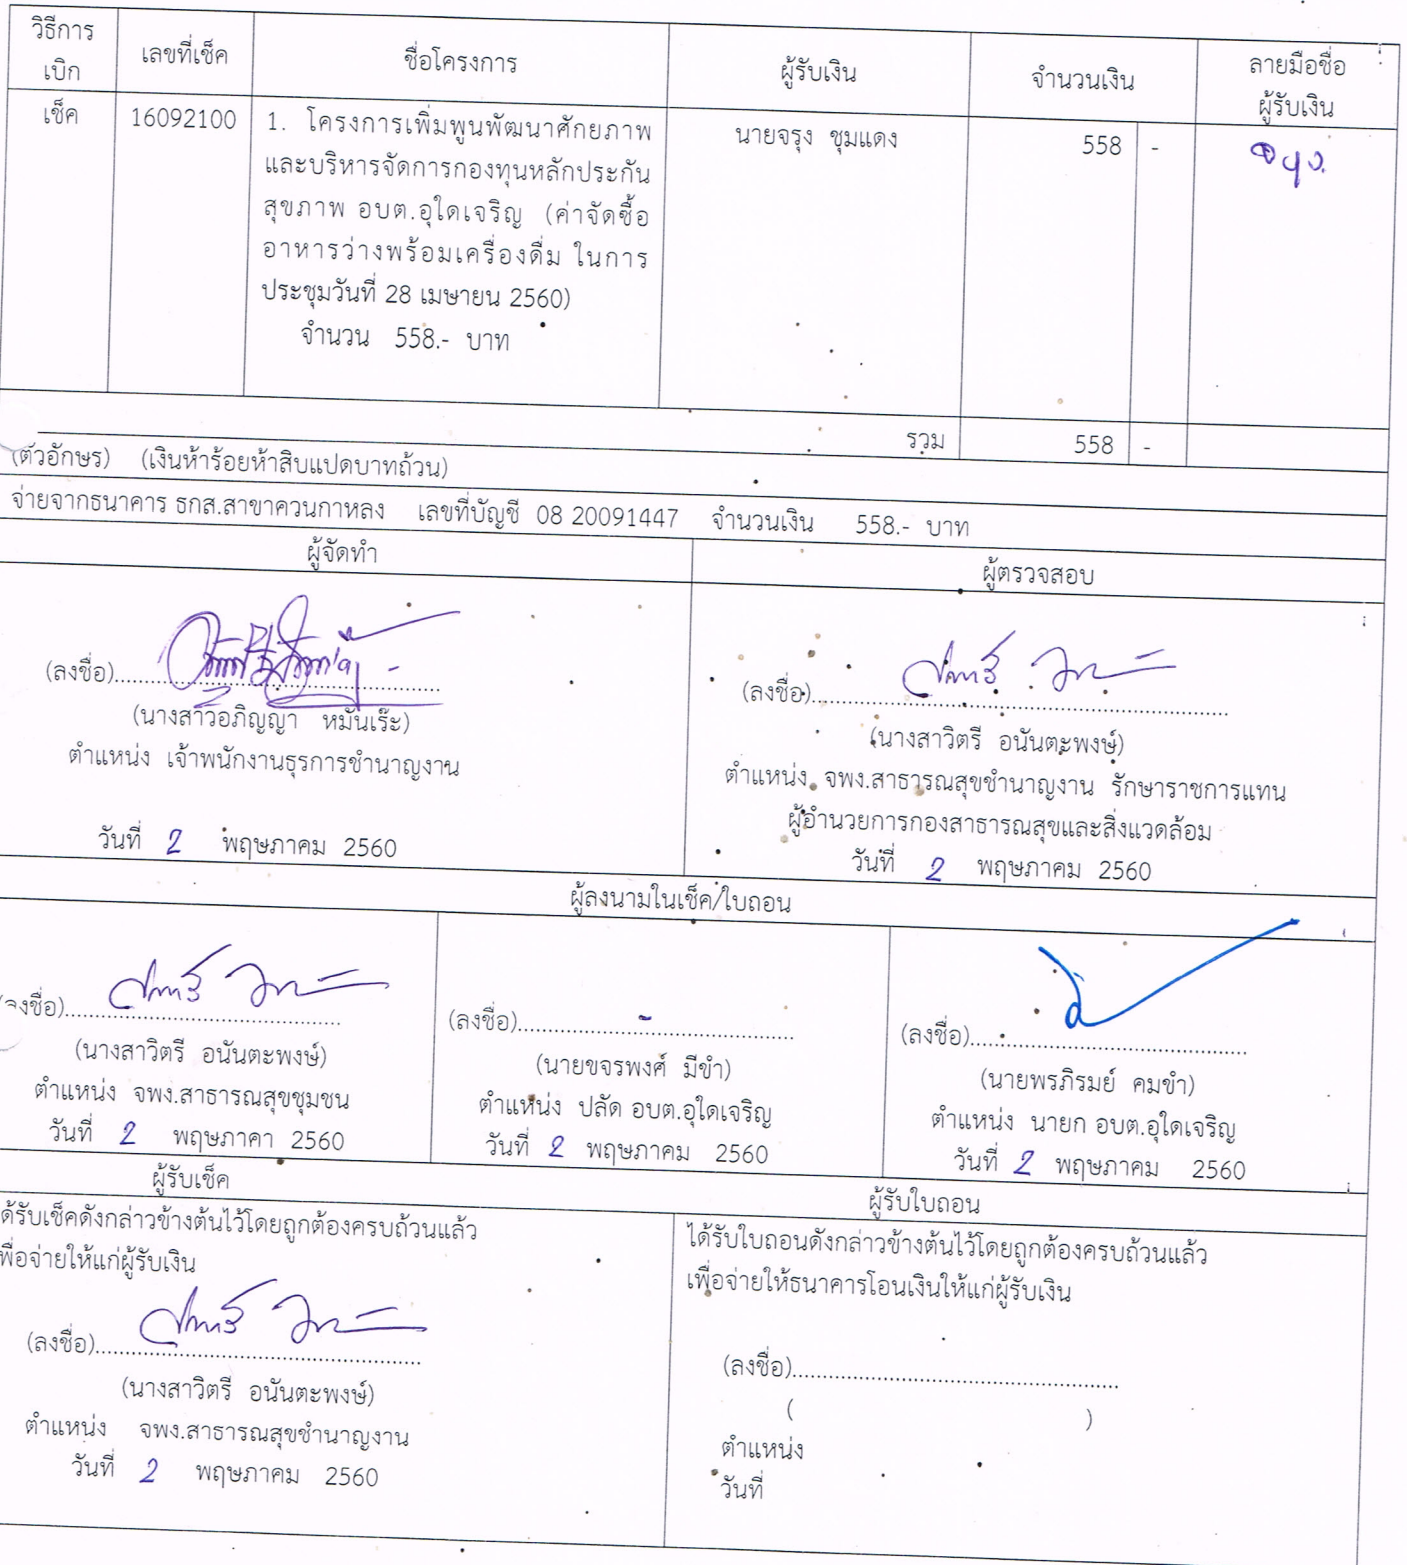 วิธีการ
เบิก
เลขที่เช็ค
ชื่อโครงการ
ผู้รับเงิน
จำนวนเงิน
ลายมือชื่อ
ผู้รับเงิน
เช็ค
16092100
1. โครงการเพิ่มพูนพัฒนาศักยภาพ
และบริหารจัดการกองทุนหลักประกัน
สุขภาพ อบต.อุใดเจริญ (ค่าจัดซื้อ
อาหารว่างพร้อมเครื่องดื่ม ในการ
ประชุมวันที่ 28 เมษายน 2560)
จำนวน 558.- บาท
นายจรุง ชุมแดง
558 -
จรุง.
รวม 558 -
(ตัวอักษร) (เงินห้าร้อยห้าสิบแปดบาทถ้วน)
จ่ายจากธนาคาร ธกส.สาขาควนกาหลง เลขที่บัญชี 08 20091447 จำนวนเงิน 558.- บาท
ผู้จัดทำ
(ลงชื่อ)
(นางสาวอภิญญา หมันเร๊ะ)
ตำแหน่ง เจ้าพนักงานธุรการชำนาญงาน
วันที่ 2 พฤษภาคม 2560
ผู้ตรวจสอบ
(ลงชื่อ)
(นางสาวิตรี อนันตะพงษ์)
ตำแหน่ง จพง.สาธารณสุขชำนาญงาน รักษาราชการแทน
ผู้อำนวยการกองสาธารณสุขและสิ่งแวดล้อม
วันที่ 2 พฤษภาคม 2560
ผู้ลงนามในเช็ค/ใบถอน
(ลงชื่อ)
(นางสาวิตรี อนันตะพงษ์)
ตำแหน่ง จพง.สาธารณสุขชุมชน
วันที่ 2 พฤษภาคา 2560
(ลงชื่อ) -
(นายขจรพงศ์ มีขำ)
ตำแหน่ง ปลัด อบต.อุใดเจริญ
วันที่ 2 พฤษภาคม 2560
(ลงชื่อ)
(นายพรภิรมย์ คมขำ)
ตำแหน่ง นายก อบต.อุใดเจริญ
วันที่ 2 พฤษภาคม 2560
ผู้รับเช็ค
ด้รับเช็คดังกล่าวข้างต้นไว้โดยถูกต้องครบถ้วนแล้ว
พื่อจ่ายให้แก่ผู้รับเงิน
(ลงชื่อ)
(นางสาวิตรี อนันตะพงษ์)
ตำแหน่ง จพง.สาธารณสุขชำนาญงาน
วันที่ 2 พฤษภาคม 2560
ผู้รับใบถอน
ได้รับใบถอนดังกล่าวข้างต้นไว้โดยถูกต้องครบถ้วนแล้ว
เพื่อจ่ายให้ธนาคารโอนเงินให้แก่ผู้รับเงิน
(ลงชื่อ)
( )
ตำแหน่ง
วันที่